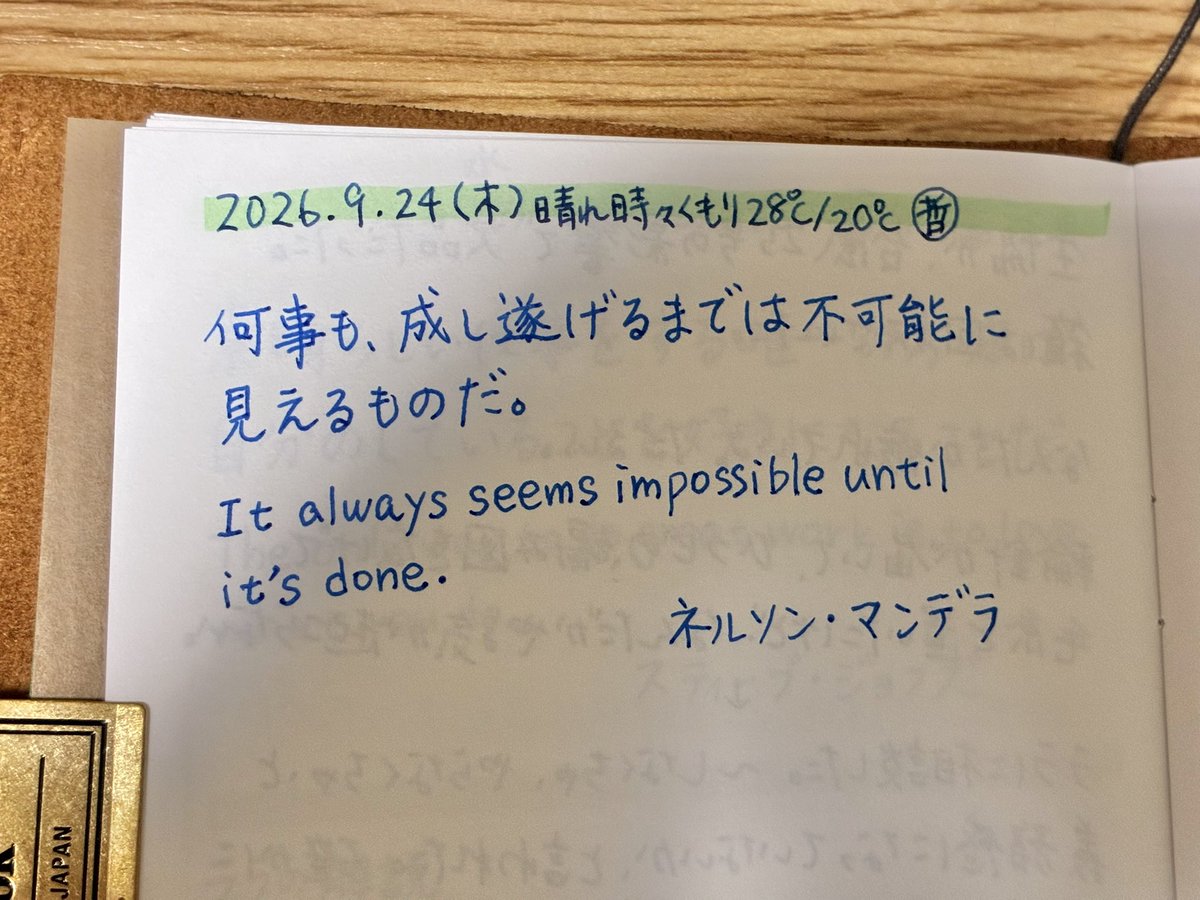 2026.9.24(木)晴れ時々くもり28℃/20℃ ㊢
何事も、成し遂げるまでは不可能に
見えるものだ。
It always seems impossible until
it's done.
ネルソン・マンデラ
JAPAN